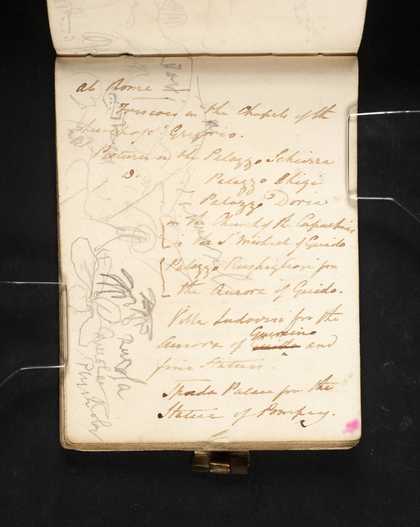 at Rome
Frescoes in the Chapels of the
Church of St Gregorio.
Pictures in the Palazzo Schiarra
Do Palazzo Chigi
Palazzo Doria
in the Church of the Capuchins
is the St Michael of Guido
Palazzo Rospigliosi for
the Aurora of Guido.
Villa Ludovisi for the
Aurora of Guercino and
fine Statues.
Spada Palace for the
Statue of Pompey.